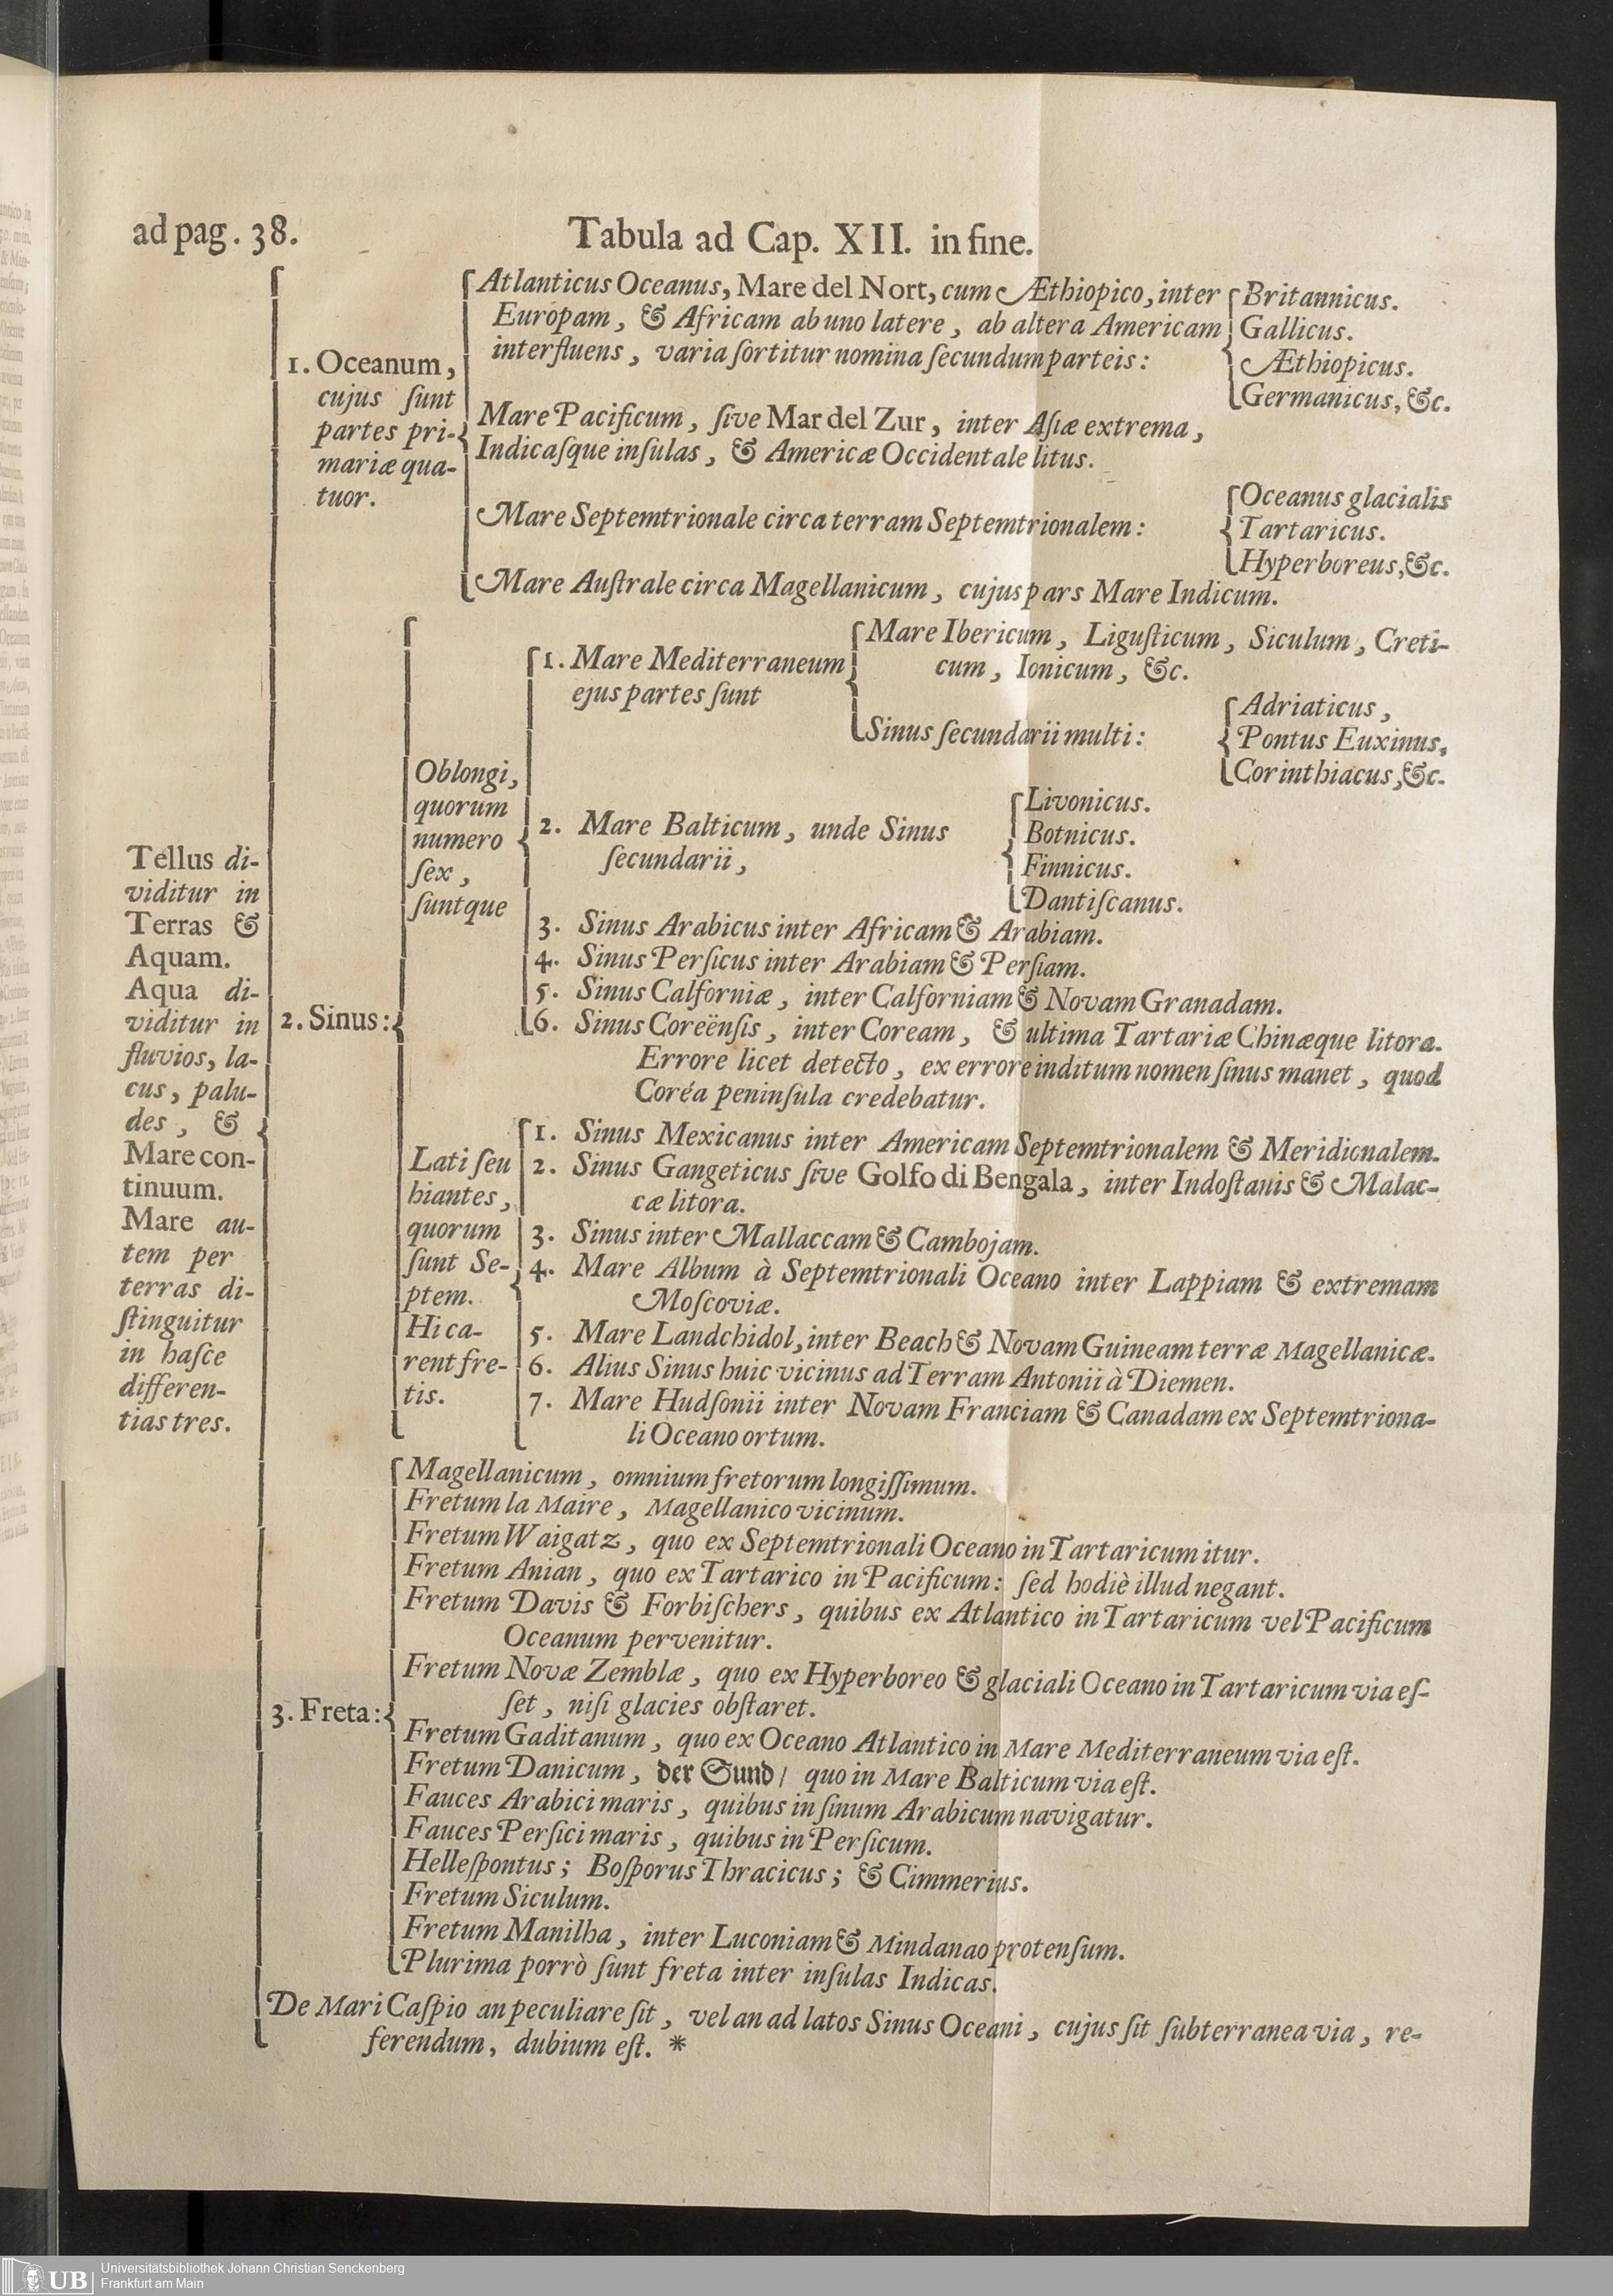 ad pag. 38.
Tabula ad Cap. XII. in fine.
Tellus di-
viditur in
Terras &
Aquam.
Aqua di-
viditur in
fluvios, la-
cus, palu-
des, &
Mare con-
tinuum.
Mare au-
tem per
terras di-
ſtinguitur
in haſce
differen-
tias tres.
1. Oceanum,
cujus ſunt
partes pri-
mariæ qua-
tuor.
Atlanticus Oceanus, Mare del Nort, cum Æthiopico, inter
Europam, & Africam ab uno latere, ab altera Americam
interfluens, varia ſortitur nomina ſecundum parteis:
Britannicus.
Gallicus.
Æthiopicus.
Germanicus, &c.
Mare Pacificum, ſive Mar del Zur, inter Aſiæ extrema,
Indicaſque inſulas, & Americæ Occidentale litus.
Mare Septemtrionale circa terram Septemtrionalem:
Oceanus glacialis
Tartaricus.
Hyperboreus, &c.
Mare Auſtrale circa Magellanicum, cujus pars Mare Indicum.
2. Sinus:
Oblongi,
quorum
numero
ſex,
ſuntque
1. Mare Mediterraneum
ejus partes ſunt
Mare Ibericum, Liguſticum, Siculum, Creti-
cum, Ionicum, &c.
Sinus ſecundarii multi:
Adriaticus,
Pontus Euxinus,
Corinthiacus, &c.
2. Mare Balticum, unde Sinus
ſecundarii,
Livonicus.
Botnicus.
Finnicus.
Dantiſcanus.
3. Sinus Arabicus inter Africam & Arabiam.
4. Sinus Perſicus inter Arabiam & Perſiam.
5. Sinus Calforniæ, inter Calforniam & Novam Granadam.
6. Sinus Coreënſis, inter Coream, & ultima Tartariæ Chinæque litora.
Errore licet detecto, ex errore inditum nomen ſinus manet, quod
Coréa peninſula credebatur.
Lati ſeu
hiantes,
quorum
ſunt Se-
ptem.
Hi ca-
rent fre-
tis.
1. Sinus Mexicanus inter Americam Septemtrionalem & Meridionalem.
2. Sinus Gangeticus ſive Golfo di Bengala, inter Indoſtanis & Malac-
cæ litora.
3. Sinus inter Mallaccam & Cambojam.
4. Mare Album à Septemtrionali Oceano inter Lappiam & extremam
Moſcoviæ.
5. Mare Landchidol, inter Beach & Novam Guineam terræ Magellanicæ.
6. Alius Sinus huic vicinus ad Terram Antonii à Diemen.
7. Mare Hudſonii inter Novam Franciam & Canadam ex Septemtriona-
li Oceano ortum.
3. Freta:
Magellanicum, omnium fretorum longiſſimum.
Fretum la Maire, Magellanico vicinum.
Fretum Waigatz, quo ex Septemtrionali Oceano in Tartaricum itur.
Fretum Anian, quo ex Tartarico in Pacificum: ſed hodiè illud negant.
Fretum Davis & Forbiſchers, quibus ex Atlantico in Tartaricum vel Pacificum
Oceanum pervenitur.
Fretum Novæ Zemblæ, quo ex Hyperboreo & glaciali Oceano in Tartaricum via eſ-
ſet, niſi glacies obſtaret.
Fretum Gaditanum, quo ex Oceano Atlantico in Mare Mediterraneum via eſt.
Fretum Danicum, der Sund/ quo in Mare Balticum via eſt.
Fauces Arabici maris, quibus in ſinum Arabicum navigatur.
Fauces Perſici maris, quibus in Perſicum.
Helleſpontus; Boſporus Thracicus; & Cimmerius.
Fretum Siculum.
Fretum Manilha, inter Luconiam & Mindanao protenſum.
Plurima porrò ſunt freta inter inſulas Indicas.
De Mari Caſpio an peculiare ſit, vel an ad latos Sinus Oceani, cujus ſit ſubterranea via, re-
ferendum, dubium eſt. *
UB
Universitätsbibliothek Johann Christian Senckenberg
Frankfurt am Main